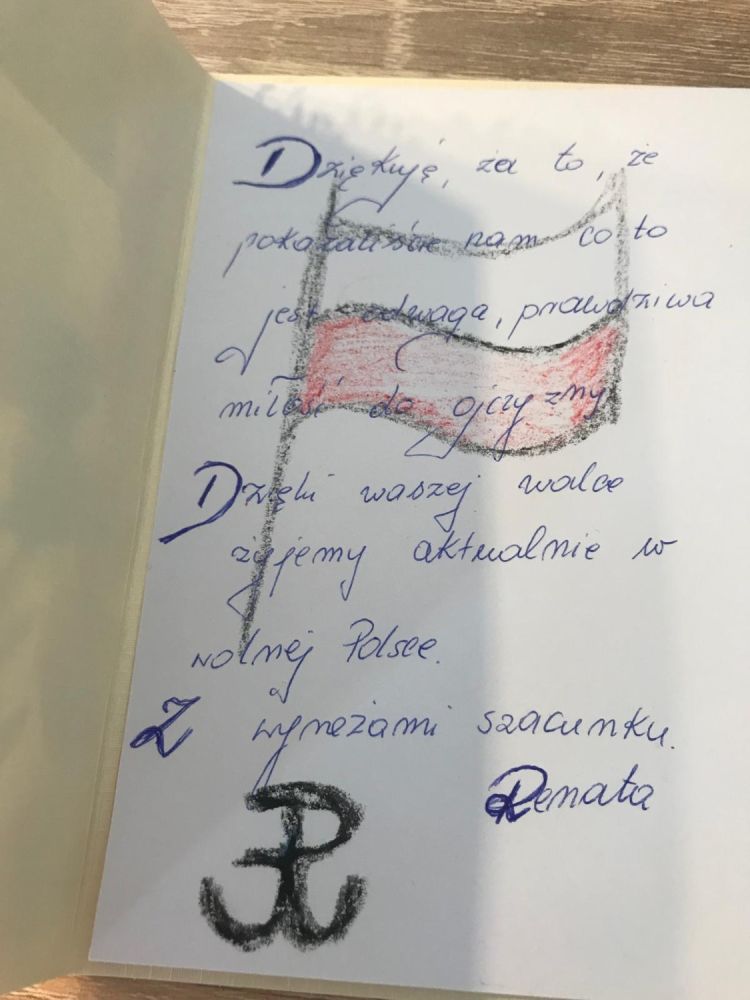 Dziękuję, za to, że
pokazaliście nam co to
jest odwaga, prawdziwa
miłość do ojczyzny
Dzięki waszej walce
żyjemy aktualnie w
wolnej Polsce.
Z wyrazami szacunku.
Renata